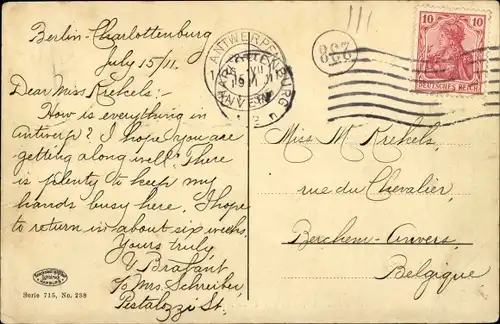 Berlin-Charlottenburg
July 15/11.
Dear Miss Krekels:
How is everything in
Antwerp? I hope you are
getting along well. There
is plenty to keep my
hands busy here. I hope
to return in about six weeks.
Yours truly,
V Brabant
c/o Mrs. Schreiber
Pestalozzi St.
Serie 715, No. 238
ANTWERPEN
ANVERS
CHARLOTTENBURG
863
10 10
DEUTSCHES REICH
Miss M Krekels.
rue du Chevalier,
Berchem-Anvers.
Belgique